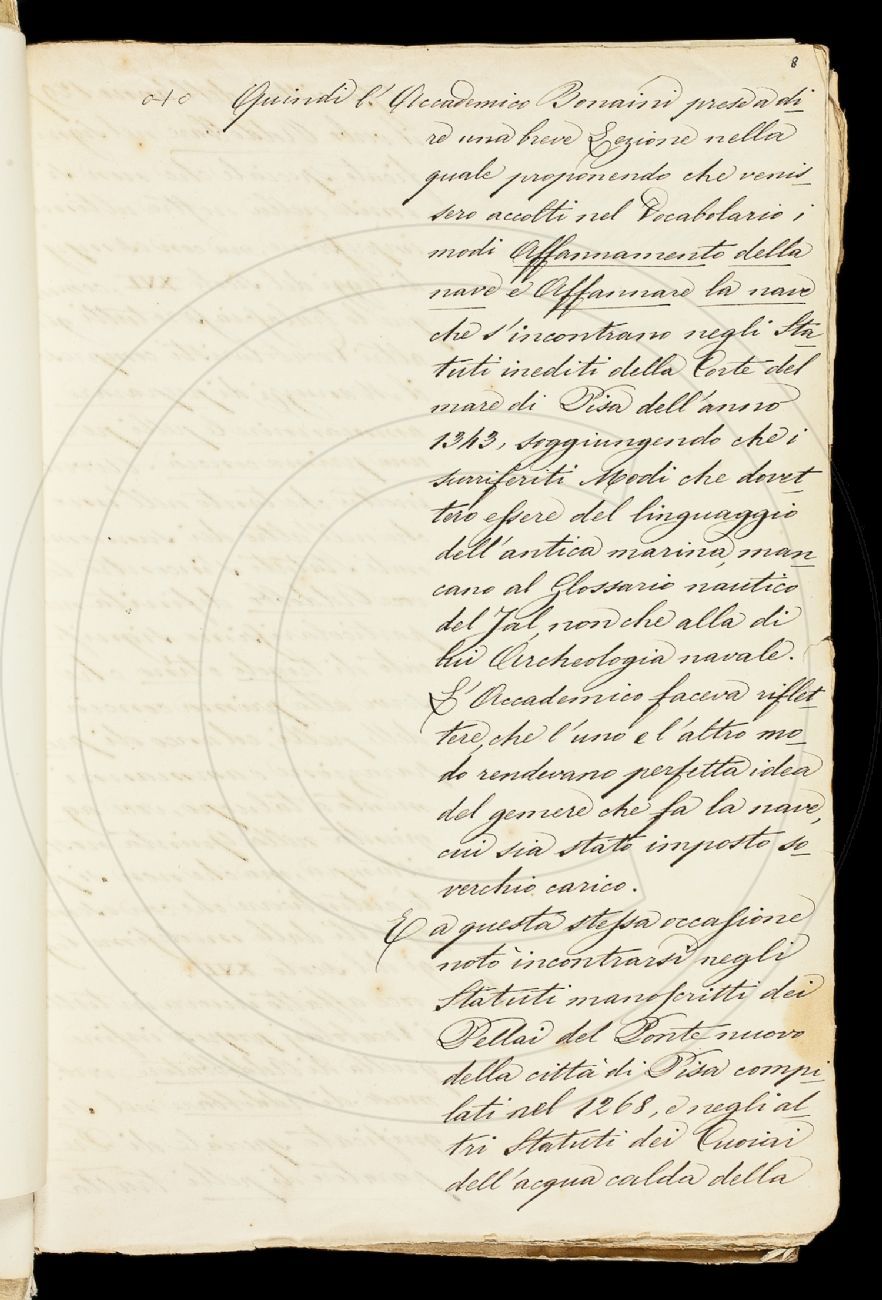 8
o+o Quindi l'Accademico Bonaini prese a di-
re una breve Lezione nella
quale proponendo che venis-
sero accolti nel Vocabolario i
modi Affannamento della
nave e Affannare la nave
che s'incontrano negli Sta-
tuti inediti della Corte del
mare di Pisa dell'anno
1343, soggiungendo che i
surriferiti Modi che dovet-
tero essere del linguaggio
dell'antica marina, man-
cano al Glossario nautico
del Jal, non che alla di
lui Archeologia navale.
L'Accademico faceva riflet-
tere, che l'uno e l'altro mo-
do rendevano perfetta idea
del gemere che fa la nave,
cui sia stato imposto so-
verchio carico.
E a questa stessa occasione
notò incontrarsi negli
Statuti manoscritti dei
Pellai del Ponte nuovo
della città di Pisa compi-
lati nel 1268, e negli al-
tri Statuti dei Cuoiai
dell'acqua calda della